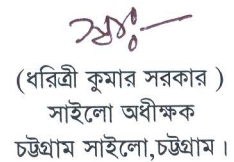 স্বাঃ—
(ধরিত্রী কুমার সরকার )
সাইলো অধীক্ষক
চট্টগ্রাম সাইলো,চট্টগ্রাম ।